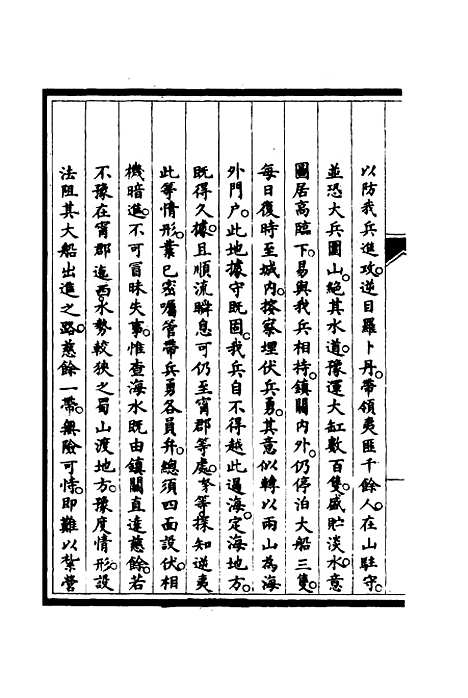 以防我兵進攻。逆目羅卜丹。帶領夷匪千餘人。在山駐守。
並恐大兵圍山。絕其水道。豫運大缸數百隻。盛貯淡水。意
圖居高臨下。易與我兵相持。鎮關內外。仍停泊大船三隻。
每日復時至城內。按察埋伏兵勇。其意似轉以兩山為海
外門戶。此地據守既固。我兵自不得越此過海。定海地方。
既得久據。且順流瞬息可仍至甯郡等處。等探知逆夷
此等情形。業已密囑管帶兵勇各員弁。總須四面設伏。相
機暗進。不可冒昧失事。惟查海水既由鎮關直達慈餘。若
不豫在甯郡迤西。水勢較狹之蜀山渡地方。豫度情形。設
法阻其大船出進之路。慈餘一帶。無險可恃。即難以紮營